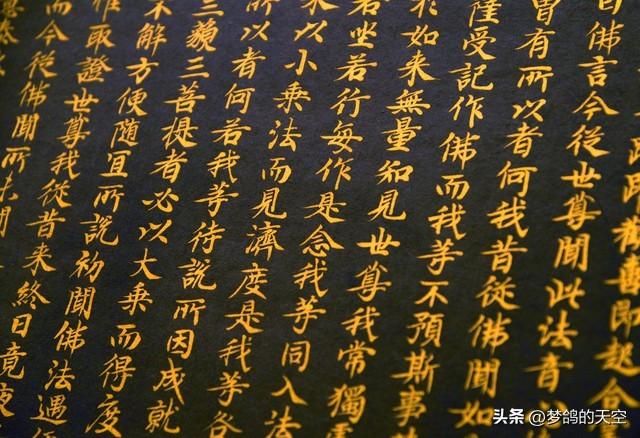 歡喜即起合
白佛言今從世尊聞此法音
曾有所以者何我昔從佛聞如
薩受記作佛而我等不預斯事
於如來無量知見世尊我常獨
若坐若行每作是念我等同入法
來以小乘法而見濟度是我等各
所以者何若我等待說所因成就
三藐三菩提者必以大乘而得度
不解方便隨宜所說初聞佛法遇
取證世尊我從昔來終日竟夜
而今從佛聞所未聞
头条 @梦鸽的天空